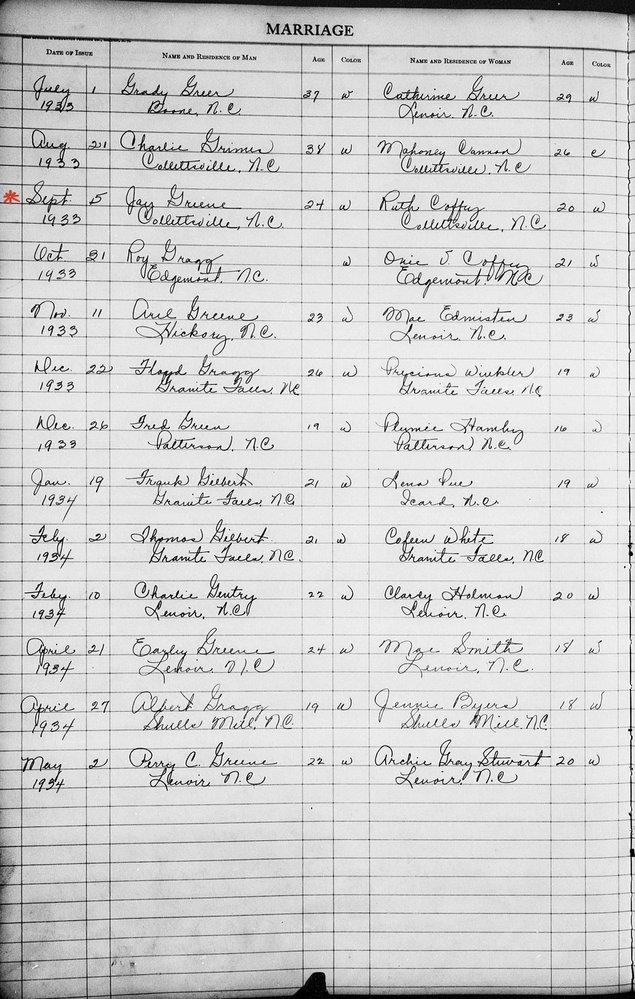 MARRIAGE
DATE OF ISSUE NAME AND RESIDENCE OF MAN AGE COLOR NAME AND RESIDENCE OF WOMAN AGE COLOR
July 1 Grady Greer 37 w Catherine Greer 29 w
1933 Boone, N.C. Lenoir, N.C.
Aug. 21 Charlie Grimes 38 w Mahoney Cannon 26 c
1933 Collettsville, N.C. Collettsville, N.C.
* Sept. 5 Jay Greene 24 w Ruth Coffey 20 w
1933 Collettsville, N.C. Collettsville, N.C.
Oct. 31 Roy Gragg w Onie V. Coffey 21 w
1933 Edgemont, N.C. Edgemont, N.C.
Nov. 11 Greene 23 w Mae Edmisten 23 w
1933 Hickory, N.C. Lenoir, N.C.
Dec. 22 Floyd Gragg 26 w Precious Winkler 19 w
1933 Granite Falls, NC Granite Falls, NC
Dec. 26 Fred Green 19 w Hamby 16 w
1933 Patterson, N.C. Patterson, N.C.
Jan. 19 Frank Gilbert 21 w Lena Pue 19 w
1934 Granite Falls, N.C. Icard, N.C.
Feby. 2 Thomas Gilbert 21 w Coleen White 18 w
1934 Granite Falls, N.C. Granite Falls, NC
Feby. 10 Charlie Gentry 22 w Holman 20 w
1934 Lenoir, N.C. Lenoir, N.C.
April 21 Earley Greene 24 w Mae Smith 18 w
1934 Lenoir N.C Lenoir, N.C.
April 27 Albert Gragg 19 w Jennie Byers 18 w
1934 Shulls Mill, N.C Shulls Mill, N.C.
May 2 Perry C. Greene 22 w Archie Gray Stewart 20 w
1934 Lenoir N.C Lenoir, N.C